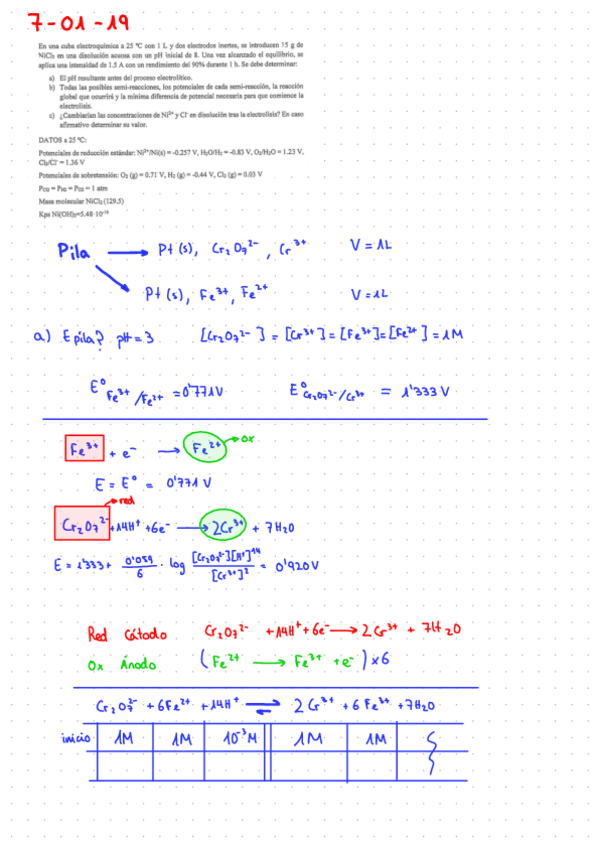 7-01-19
En una cuba electroquímica a 25 ºC con 1 L y dos electrodos inertes, se introducen 15 g de
NiCl₂ en una disolución acuosa con un pH inicial de 8. Una vez alcanzado el equilibrio, se
aplica una intensidad de 1.5 A con un rendimiento del 90% durante 1 h. Se debe determinar:
a) El pH resultante antes del proceso electrolítico.
b) Todas las posibles semi-reacciones, los potenciales de cada semi-reacción, la reacción
global que ocurrirá y la mínima diferencia de potencial necesaria para que comience la
electrolisis.
c) ¿Cambiarían las concentraciones de Ni²⁺ y Cl⁻ en disolución tras la electrolisis? En caso
afirmativo determinar su valor.
DATOS a 25 ºC:
Potenciales de reducción estándar: Ni²⁺/Ni(s) = -0.257 V, H₂O/H₂ = -0.83 V, O₂/H₂O = 1.23 V,
Cl₂/Cl⁻ = 1.36 V
Potenciales de sobretensión: O₂ (g) = 0.71 V, H₂ (g) = -0.44 V, Cl₂ (g) = 0.03 V
P_O2 = P_H2 = P_Cl2 = 1 atm
Masa molecular NiCl₂ (129.5)
Kps Ni(OH)₂=5.48·10⁻¹⁶
Pila → Pt (s), Cr₂O₇²⁻, Cr³⁺ V = 1L
Pt (s), Fe³⁺, Fe²⁺ V = 1L
a) E pila? pH = 3 [Cr₂O₇²⁻] = [Cr³⁺] = [Fe³⁺] = [Fe²⁺] = 1M
E⁰ Fe³⁺/Fe²⁺ = 0'771V E⁰ Cr₂O₇²⁻/Cr³⁺ = 1'333 V
Fe³⁺ + e⁻ → Fe²⁺ → ox
E = E⁰ = 0'771 V
→ red
Cr₂O₇²⁻ + 14H⁺ + 6e⁻ → 2Cr³⁺ + 7H₂O
E = 1'333 + 0'059/6 · log [Cr₂O₇²⁻][H⁺]¹⁴/[Cr³⁺]² = 0'920V
Red Cátodo Cr₂O₇²⁻ + 14H⁺ + 6e⁻ → 2Cr³⁺ + 7H₂O
Ox Ánodo (Fe²⁺ → Fe³⁺ + e⁻) x6
Cr₂O₇²⁻ + 6Fe²⁺ + 14H⁺ ⇌ 2Cr³⁺ + 6Fe³⁺ + 7H₂O
inicio 1M 1M 10⁻³M 1M 1M